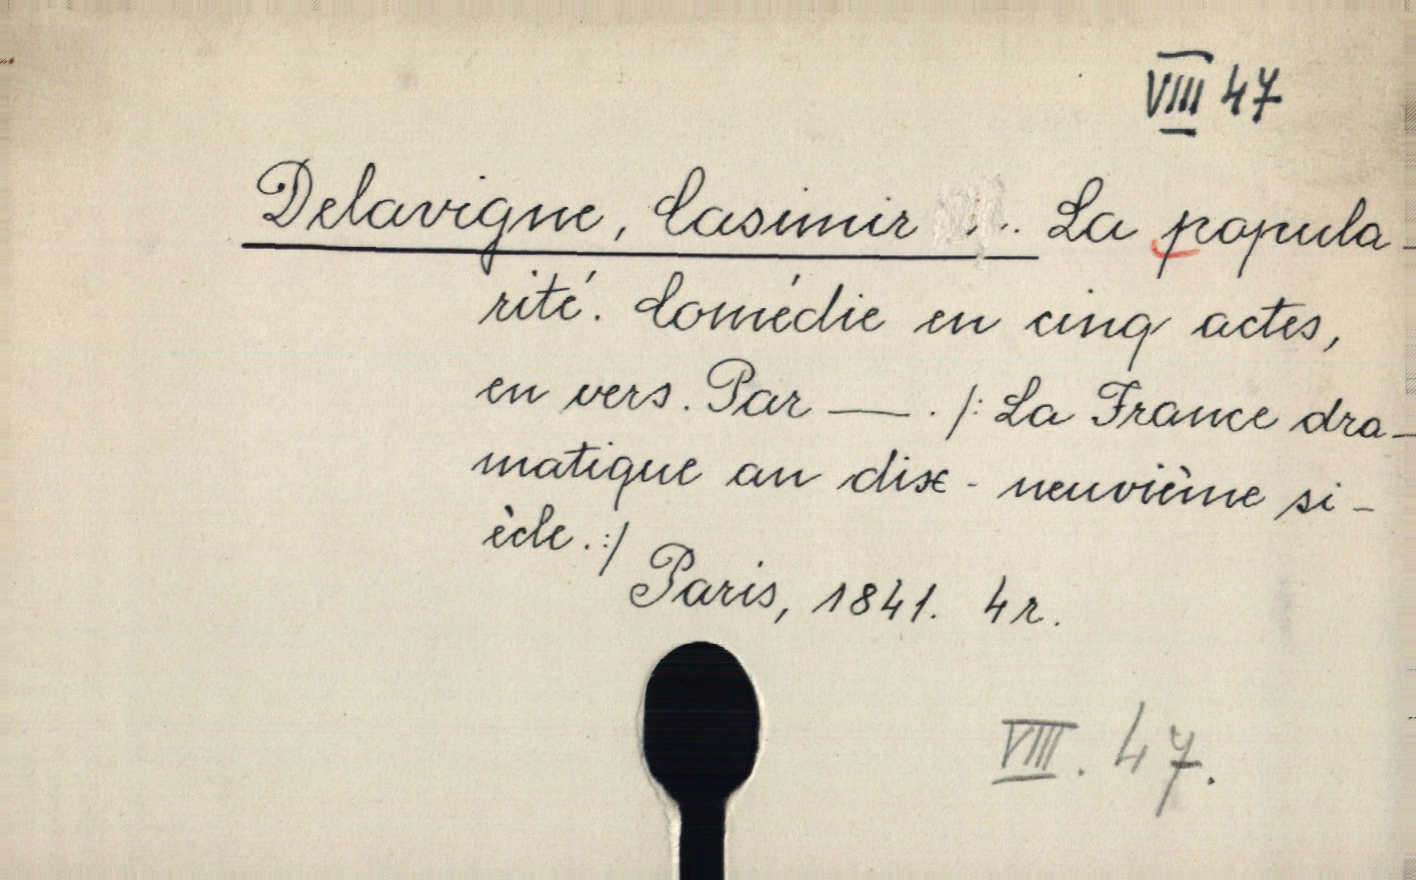 VIII 47
Delavigne, Casimir ... La popula-
rité. Comédie en cinq actes,
en vers. Par —. /: La France dra-
matique au dix-neuvième si-
ècle. :/
Paris, 1841. 4r.
VIII. 47.